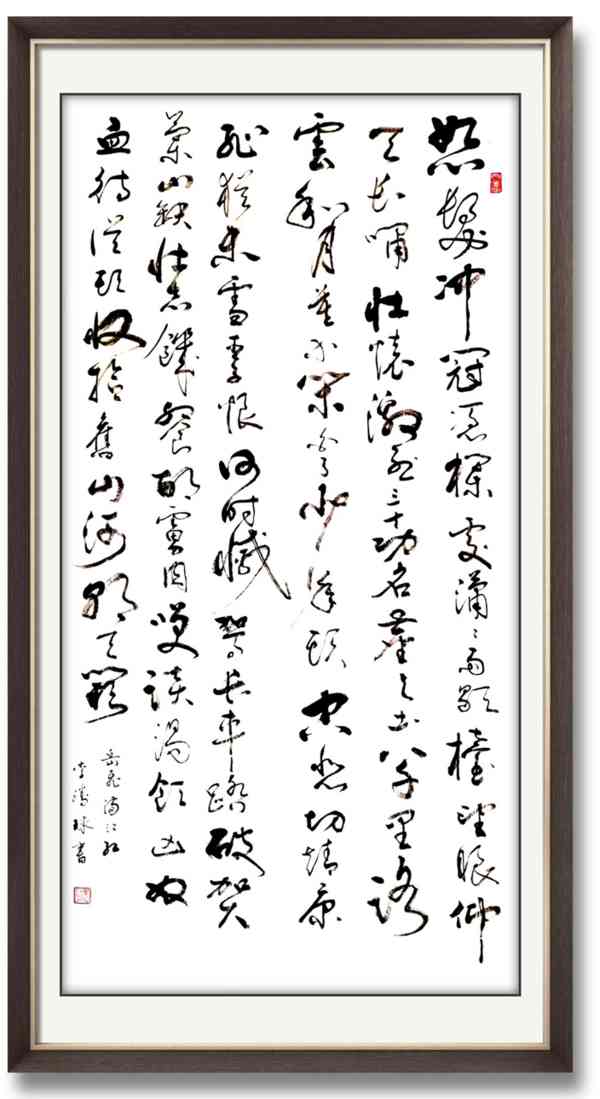 怒髮冲冠憑欄處瀟瀟雨歇檯望眼仰
天長嘯壯懷激烈三十功名塵与土八千里路
雲和月莫等閑白了少年頭空悲切靖康
耻猶未雪臣子恨何时滅駕長車踏破賀
蘭山缺壯志饑餐胡虜肉笑談渴飲匈奴
血待從頭收拾舊山河朝天闕
岳飛滿江紅
李球書